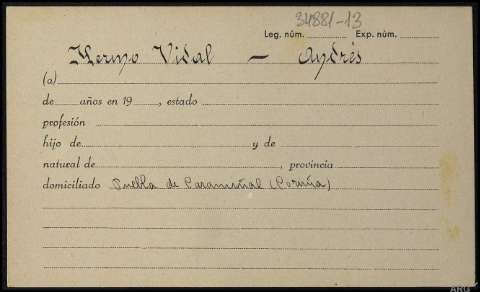 34881-13
Leg. núm. Exp. núm.
Hermo Vidal — Andrés
(a)
de años en 19 , estado
profesión
hijo de y de
natural de , provincia
domiciliado Puebla de Caramiñal (Coruña)
ARG